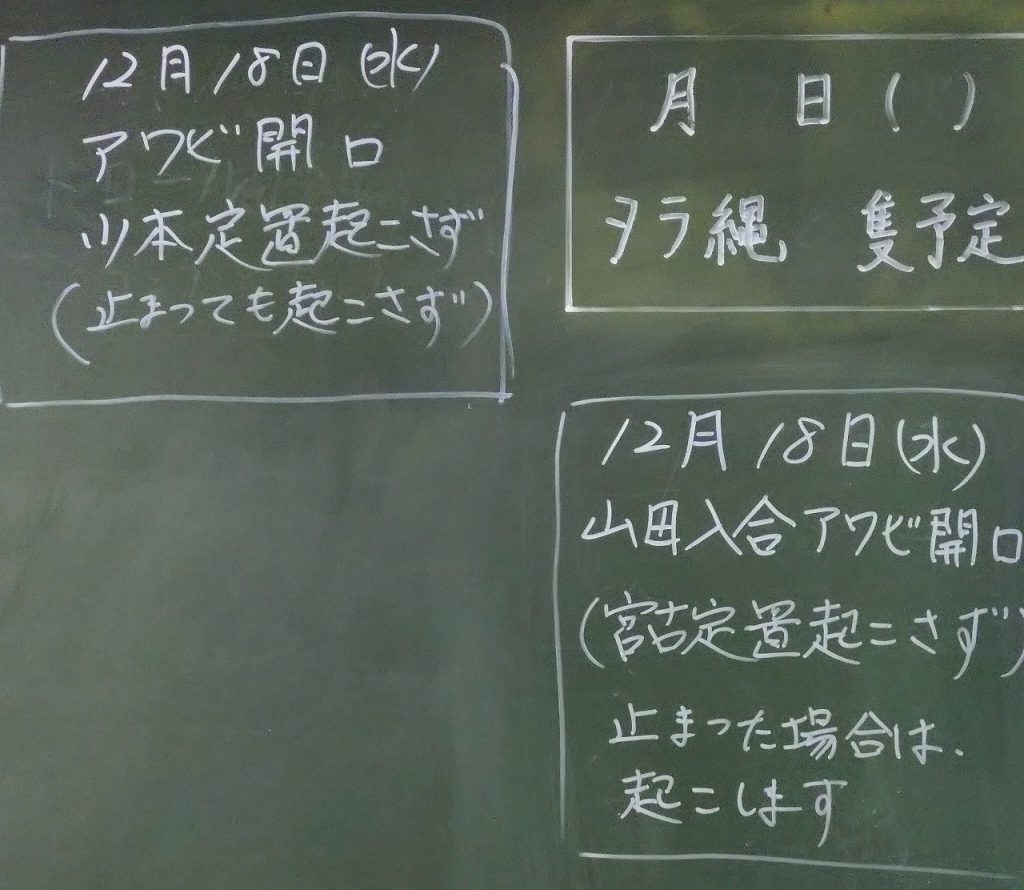 12月18日(水)
アワビ開口
小本定置起こさず
(止まっても起こさず)
月 日( )
タラ縄 隻予定
12月18日(水)
山田入合アワビ開口
(宮古定置起こさず)
止まった場合は、
起こします